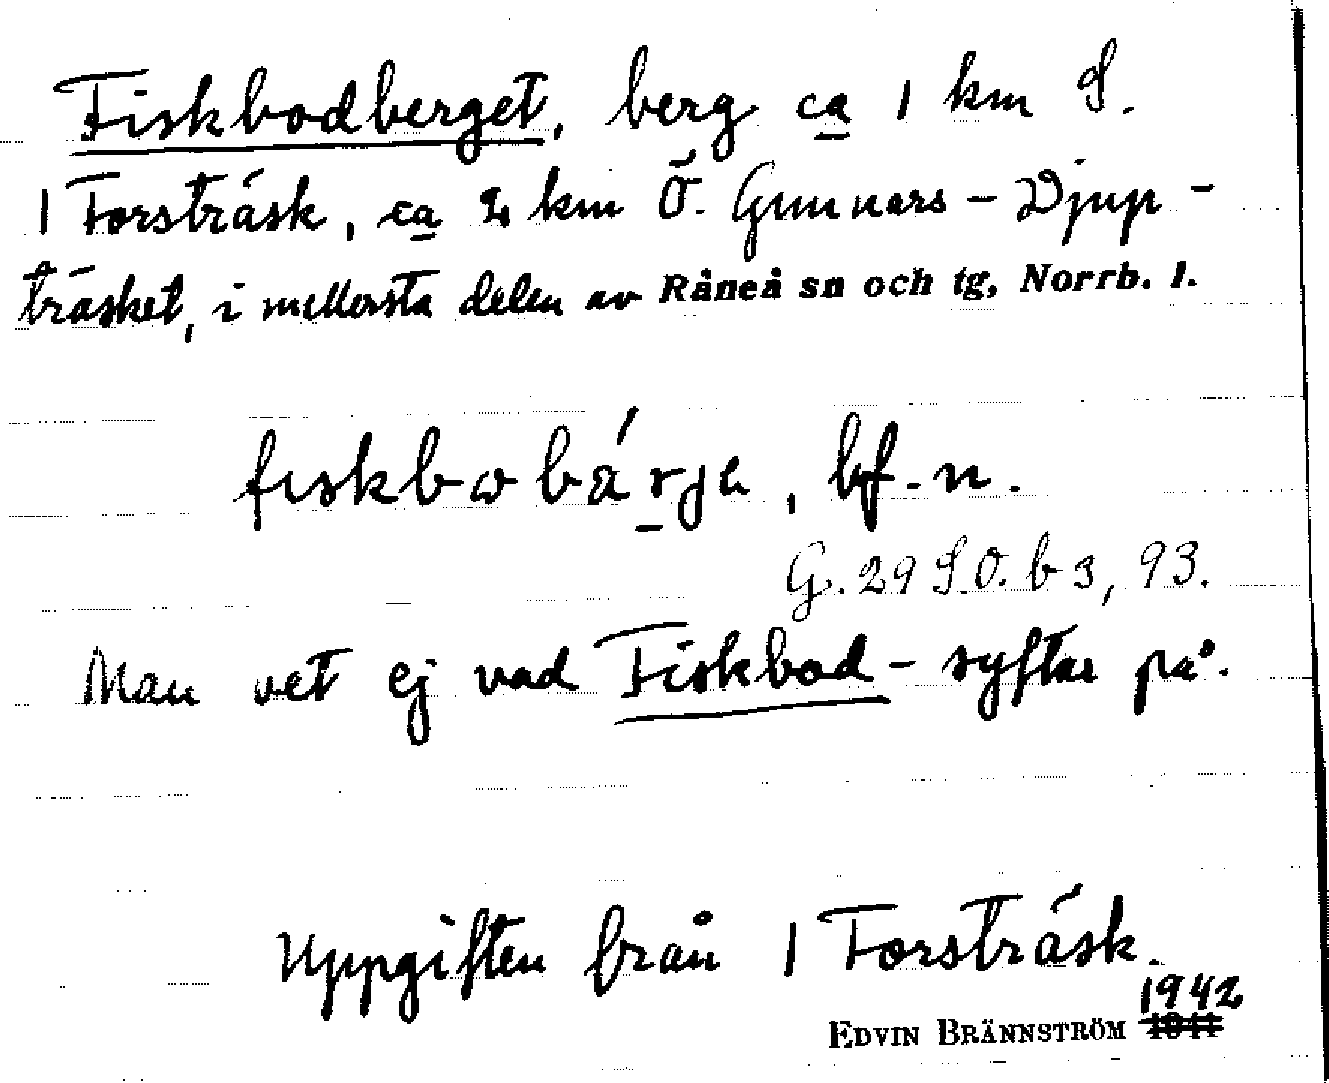 Fiskbodberget, berg ca 1 km S.
1 Forsträsk, ca 2 km Ö. Gunnars-Djup-
träsket, i mellersta delen av Råneå sn och tg, Norrb. l.
fiskbωbárja, bf. n.
G. 29 S.O. b 3, 93.
Man vet ej vad Fiskbod- syftar på.
Uppgiften från 1 Forsträsk.
1942
EDVIN BRÄNNSTRÖM 1941